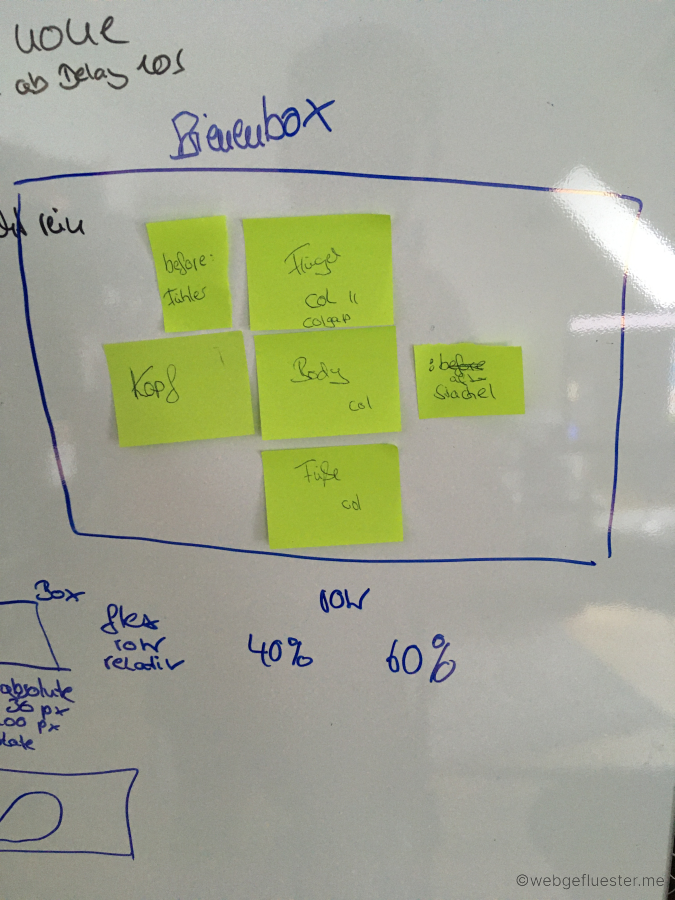 ab Delay 10s
Bienenbox
rein
before:
Fühler
Flügel
col 11
colgap
Kopf
Body
col
:before
Stachel
Füße
col
Box
row
flex
row
relativ
40%
60%
absolute
36 px
00 px
©webgefluester.me